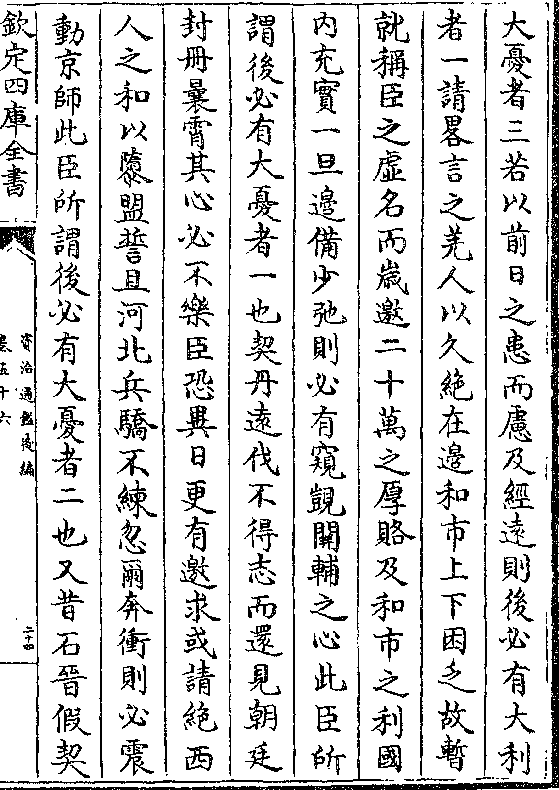 大憂者三若以前日之患而慮及經遠則後必有大利
者一請畧言之羌人以久絶在邊和市上下困乏故暫
就稱臣之虛名而歲邀二十萬之厚賂及和市之利國
内充實一旦邊備少弛則必有窺覦關輔之心此臣所
謂後必有大憂者一也契丹遠伐不得志而還見朝廷
封册曩霄其心必不樂臣恐異日更有邀求或請絶西
人之和以隳盟誓且河北兵驕不練忽爾奔衝則必震
動京師此臣所謂後必有大憂者二也又昔石晉假契
欽定四庫全書
資治通鑑後編
卷五十六
二十四